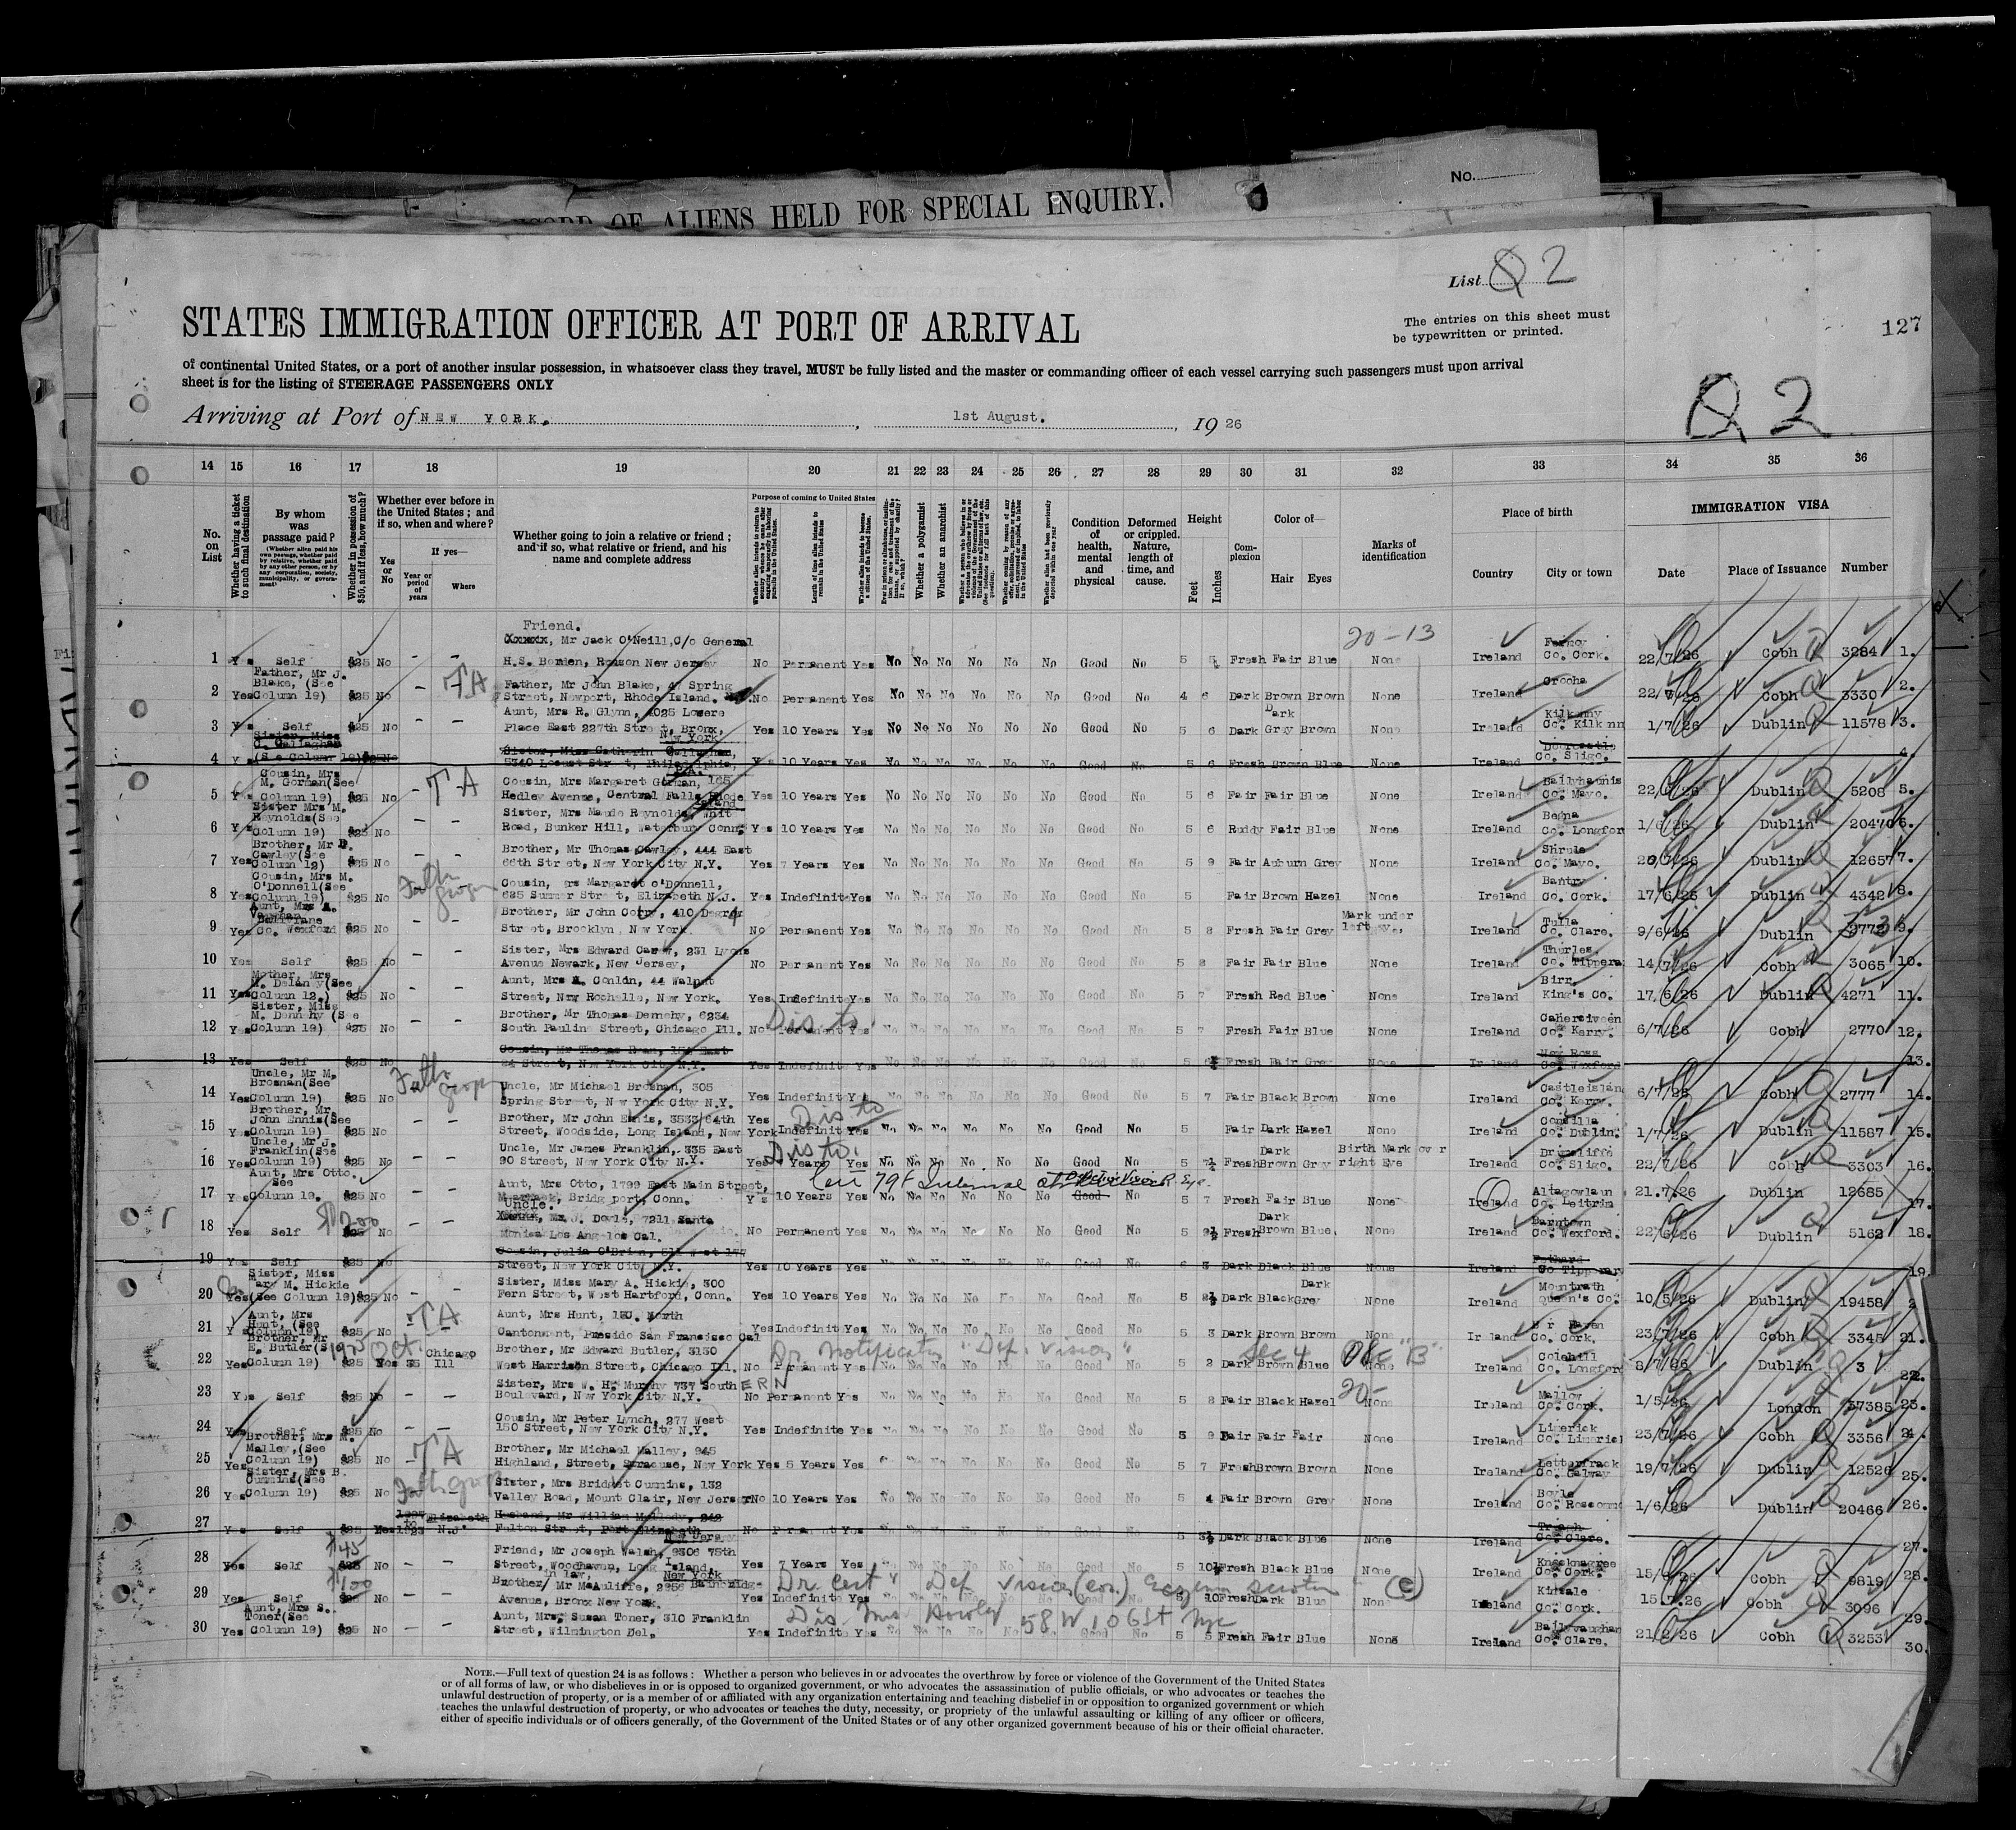 No.
RECORD OF ALIENS HELD FOR SPECIAL INQUIRY.
List Q 2
STATES IMMIGRATION OFFICER AT PORT OF ARRIVAL
The entries on this sheet must
be typewritten or printed.
127
of continental United States, or a port of another insular possession, in whatsoever class they travel, MUST be fully listed and the master or commanding officer of each vessel carrying such passengers must upon arrival
sheet is for the listing of STEERAGE PASSENGERS ONLY
Q 2
Arriving at Port of NEW YORK. , 1st August. , 19 26
14 15 16 17 18 19 20 21 22 23 24 25 26 27 28 29 30 31 32 33 34 35 36
No. on List
Whether having a ticket to such final destination
By whom was passage paid?
(Whether alien paid his own passage, whether paid by relative, whether paid by any other person, or by any corporation, society, municipality, or government)
Whether in possession of $50, and if less, how much?
Whether ever before in the United States; and if so, when and where?
Yes or No
If yes—
Year or period of years
Where
Whether going to join a relative or friend; and if so, what relative or friend, and his name and complete address
Purpose of coming to United States
Length of time alien intends to remain in the United States
Whether alien intends to become a citizen of the United States
Whether a polygamist
Whether an anarchist
Condition of health, mental and physical
Deformed or crippled. Nature, length of time, and cause.
Height
Feet
Inches
Complexion
Color of—
Hair
Eyes
Marks of identification
Place of birth
Country
City or town
IMMIGRATION VISA
Date
Place of Issuance
Number
1 Yes Self $25 No — — Friend. Mr Jack O'Neill, C/o General H.S. Borden, Rumson New Jersey No Permanent Yes No No No No No No Good No 5 5 Fresh Fair Blue None 20-13 Ireland Fermoy Co. Cork. 22/7/26 Cobh 3284 1.
2 Yes Father, Mr J. Blake, (See Column 19) $25 No — — TA Father, Mr John Blake, 47 Spring Street, Newport, Rhode Island. No Permanent Yes No No No No No No Good No 4 6 Dark Brown Brown None Ireland Crooha 22/7/26 Cobh 3330 2.
3 Yes Self $25 No — — Aunt, Mrs R. Glynn, 4025 Lowere Place East 227th Street, Bronx, New York Yes 10 Years Yes No No No No No No Good No 5 6 Dark Dark Grey Brown None Ireland Kilkenny Co. Kilkenn 1/7/26 Dublin 11578 3.
4 Yes Sister, Miss C. Gallagher (See Column 19) $25 No Sister, Miss Catherin Gallagher, 5340 Locust Street, Philadelphia, PA. Yes 10 Years Yes No No No No No No Good No 5 6 Fresh Brown Blue None Ireland Co. Sligo. 4.
5 Yes Cousin, Mrs M. Gorman (See Column 19) $25 No — TA Cousin, Mrs Margaret Gorman, 165 Hedley Avenue, Central Falls Rhode Island Yes 10 Years Yes No No No No No No Good No 5 6 Fair Fair Blue None Ireland Ballyhaunis Co. Mayo. 22/6/26 Dublin 5208 5.
6 Yes Sister Mrs M. Reynolds (See Column 19) $25 No — — Sister, Mrs Maude Reynolds, Whit Road, Bunker Hill, Waterbury Conn. Yes 10 Years Yes No No No No No No Good No 5 6 Ruddy Fair Blue None Ireland Begna Co. Longfor 1/6/26 Dublin 20470 6.
7 Yes Brother, Mr Cawley (See Column 12) $25 No — — Brother, Mr Thomas Cawley, 444 East 66th Street, New York City N.Y. Yes 7 Years Yes No No No No No No Good No 5 9 Fair Auburn Grey None Ireland Shrule Co. Mayo. 20/7/26 Dublin 12657 7.
8 Yes Cousin, Mrs M. O'Donnell (See Column 19) $25 No Cousin, Mrs Margaret O'Donnell, 625 Summer Street, Elizabeth N.J. Yes Indefinite Yes No No No No No No Good No 5 Fair Brown Hazel None Ireland Bantry Co. Cork. 17/6/26 Dublin 4342 8.
9 Yes Aunt, Mrs Vaughan Co. Wexford $25 No — — Brother, Mr John Cory, 410 Degraw Street, Brooklyn, New York. No Permanent Yes No No No No No No Good No 5 8 Fresh Fair Grey Mark under left eye. Ireland Tulla Co. Clare. 9/6/26 Dublin 9.
10 Yes Self $25 No — — Sister, Mrs Edward Carew, 231 Lyons Avenue Newark, New Jersey, No Permanent Yes No No No No No No Good No 5 8 Fair Fair Blue None Ireland Thurles Co. Tippera 14/7/26 Cobh 3065 10.
11 Yes Mother, Mrs M. Delany (See Column 12.) $25 No — — Aunt, Mrs Conldn, 44 Walnut Street, New Rochelle, New York. Yes Indefinite Yes No No No No No No Good No 5 7 Fresh Red Blue None Ireland Birr. King's Co. 17/6/26 Dublin 4271 11.
12 Yes Sister, Miss M. Dennehy (See Column 19) $25 No — — Brother, Mr Thomas Dennehy, 6234 South Paulina Street, Chicago Ill. No Permanent Yes Dis to No No No No No No Good No 5 7 Fresh Fair Blue None Ireland Cahersiveen Co. Kerry. 6/7/26 Cobh 2770 12.
13 Yes Self $25 No Cousin, Mr Thomas Ryan, East Street, New York City N.Y. Yes Indefinite Yes No No No No No No Good No 5 Fresh Fair Grey None Ireland New Ross Co. Wexford 13.
14 Yes Uncle, Mr M. Brosnan (See Column 19) $25 No Uncle, Mr Michael Brosnan, 305 Spring Street, New York City N.Y. Yes Indefinite Yes No No No No No No Good No 5 7 Fair Black Brown None Ireland Castleislan Co. Kerry. 6/7/26 Cobh 2777 14.
15 Yes Brother, Mr John Ennis (See Column 19) $25 No — — Brother, Mr John Ennis, 3533/64th Street, Woodside, Long Island, New York Yes Indefinite Yes Dis to No No No No No No Good No 5 Fair Dark Hazel None Ireland Co. Dublin. 1/7/26 Dublin 11587 15.
16 Yes Uncle, Mr J. Franklin (See Column 19) $25 No — — Uncle, Mr James Franklin, 335 East 90 Street, New York City N.Y. Yes Years Yes Dis to. No No No No No No Good No 5 7½ Fresh Dark Brown Grey Birth Mark over right Eye Ireland Drumcliffe Co. Sligo. 22/7/26 Cobh 3303 16.
17 Yes Aunt, Mrs Otto. See Column 19. $25 No — — Aunt, Mrs Otto, 1799 East Main Street, Bridgeport, Conn. Yes 10 Years Yes No No No No No No Good No 5 7 Fresh Fair Blue None Ireland Altagowlan Co Leitrim 21.7.26 Dublin 12685 17.
18 Yes Self $200 $25 No — — Uncle. Mr J. Doyle, 7211 Santa Monica Los Angelos Cal. No Permanent Yes No No No No No No Good No 5 9½ Fresh Dark Brown Blue. None Ireland Barntown Co. Wexford. 22/6/26 Dublin 5162 18.
19 Yes Self $25 No Cousin, Julia O'Brien, 511 West 177 Street, New York City N.Y. Yes 10 Years Yes No No No No No No Good No 6 3 Dark Black Blue None Ireland Fethard Co Tipperary 19
20 Yes Sister, Miss Mary M. Hickie (See Column 19) $25 No Sister, Miss Mary A. Hickie, 300 Fern Street, West Hartford, Conn. Yes 10 Years Yes No No No No No No Good No 5 2½ Dark Black Dark Grey None Ireland Mountrath Queen's Co. 10/5/26 Dublin 19458
21 Yes Aunt, Mrs Hunt, (See Column 19) $25 No — — TA Aunt, Mrs Hunt, 150. North Cantonment, Presido San Francisco Cal Yes Indefinite Yes No No No No No No Good No 5 3 Dark Brown Brown None Ireland Co. Cork. 23/7/26 Cobh 3345 21.
22 Yes Brother, Mr E. Butler (S Column 19) $25 Yes 1925 Oct. Chicago Ill Brother, Mr Edward Butler, 3130 West Harrison Street, Chicago Ill. No Permanent Yes Dr. Notification "Def. Vision" No No No No No No Good No 5 2 Dark Brown Blue Sec 4 "B" None Ireland Colehill Co. Longford 8/7/26 Dublin 22.
23 Yes Self $25 No — — Sister, Mrs W. H. Murphy 737 SouthERN Boulevard, New York City N.Y. No Permanent Yes No No No No No No Good No 5 8 Fair Black Hazel 20- None Ireland Mallow Co. Cork. 1/5/26 London 37385 23.
24 Yes Self $25 No — — Cousin, Mr Peter Lynch, 277 West 150 Street, New York City N.Y. Yes Indefinite Yes No No No No No No Good No 5 9 Fair Fair Fair None Ireland Limerick Co. Limeric 23/7/26 Cobh 3356 24.
25 Yes Brother, Mrs M. Malley, (See Column 19) $25 No — TA Brother, Mr Michael Malley, 945 Highland, Street, Syracuse, New York Yes 5 Years Yes No No No No No Good No 5 7 Fresh Brown Brown None Ireland Letterfrack Co. Galway 19/7/26 Dublin 12526 25.
26 Yes Sister, Mrs B. Cummins (See Column 19) $25 No Sister, Mrs Bridget Cummins, 132 Valley Road, Mount Clair, New Jersey No 10 Years Yes No No No No No No Good No 5 4 Fair Brown Grey None Ireland Boyle Co. Roscommo 1/6/26 Dublin 20466 26.
27 Yes Self Yes 1923 Elizabeth N.J. Husband, Mr William Mellody, 242 Fulton Street, Port Elizabeth New Jersey No Permanent Yes 5 3½ Dark Black Blue None Ireland Co. Clare. 27.
28 Yes Self $45 $25 No — — Friend, Mr Joseph Walsh, 9306 75th Street, Woodhaven, Long Island, New York Yes 7 Years Yes No No No No No No Good No 5 10½ Fresh Black Blue None Ireland Knocknagree Co. Cork. 15/6/26 Cobh 9819 28.
29 Yes Self $100 $25 No — — Brother in law, Mr McAuliffe, 2956 Bainbridge Avenue, Bronx New York. Yes Indefinite Yes Dr. Cert "Def. Vision (con.) Eczema scrotum" (e) 5 10 Fresh Dark Blue None Ireland Kinsale Co. Cork. 15.7.26 Cobh 3096 29.
30 Yes Aunt, Mrs S. Toner (See Column 19) $25 No — — Aunt, Mrs, Susan Toner, 310 Franklin Street, Wilmington Del. Yes Indefinite Yes Dis. Mrs 58 W 106 St Nyc No Good No 5 5 Fresh Fair Blue None Ireland Ballyvaughan Co. Clare. 21/2/26 Cobh 3253 30.
NOTE.—Full text of question 24 is as follows: Whether a person who believes in or advocates the overthrow by force or violence of the Government of the United States
or of all forms of law, or who disbelieves in or is opposed to organized government, or who advocates the assassination of public officials, or who advocates or teaches the
unlawful destruction of property, or is a member of or affiliated with any organization entertaining and teaching disbelief in or opposition to organized government or which
teaches the unlawful destruction of property, or who advocates or teaches the duty, necessity, or propriety of the unlawful assaulting or killing of any officer or officers,
either of specific individuals or of officers generally, of the Government of the United States or of any other organized government because of his or their official character.